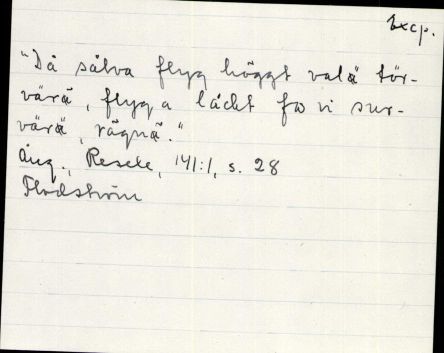 Excp.
"Då sålva flyg höggt valä tör-
värä, flyg a lächt fo vi sur-
värä, rägnä."
Ång., Resele, 141:1, s. 28
Flodström